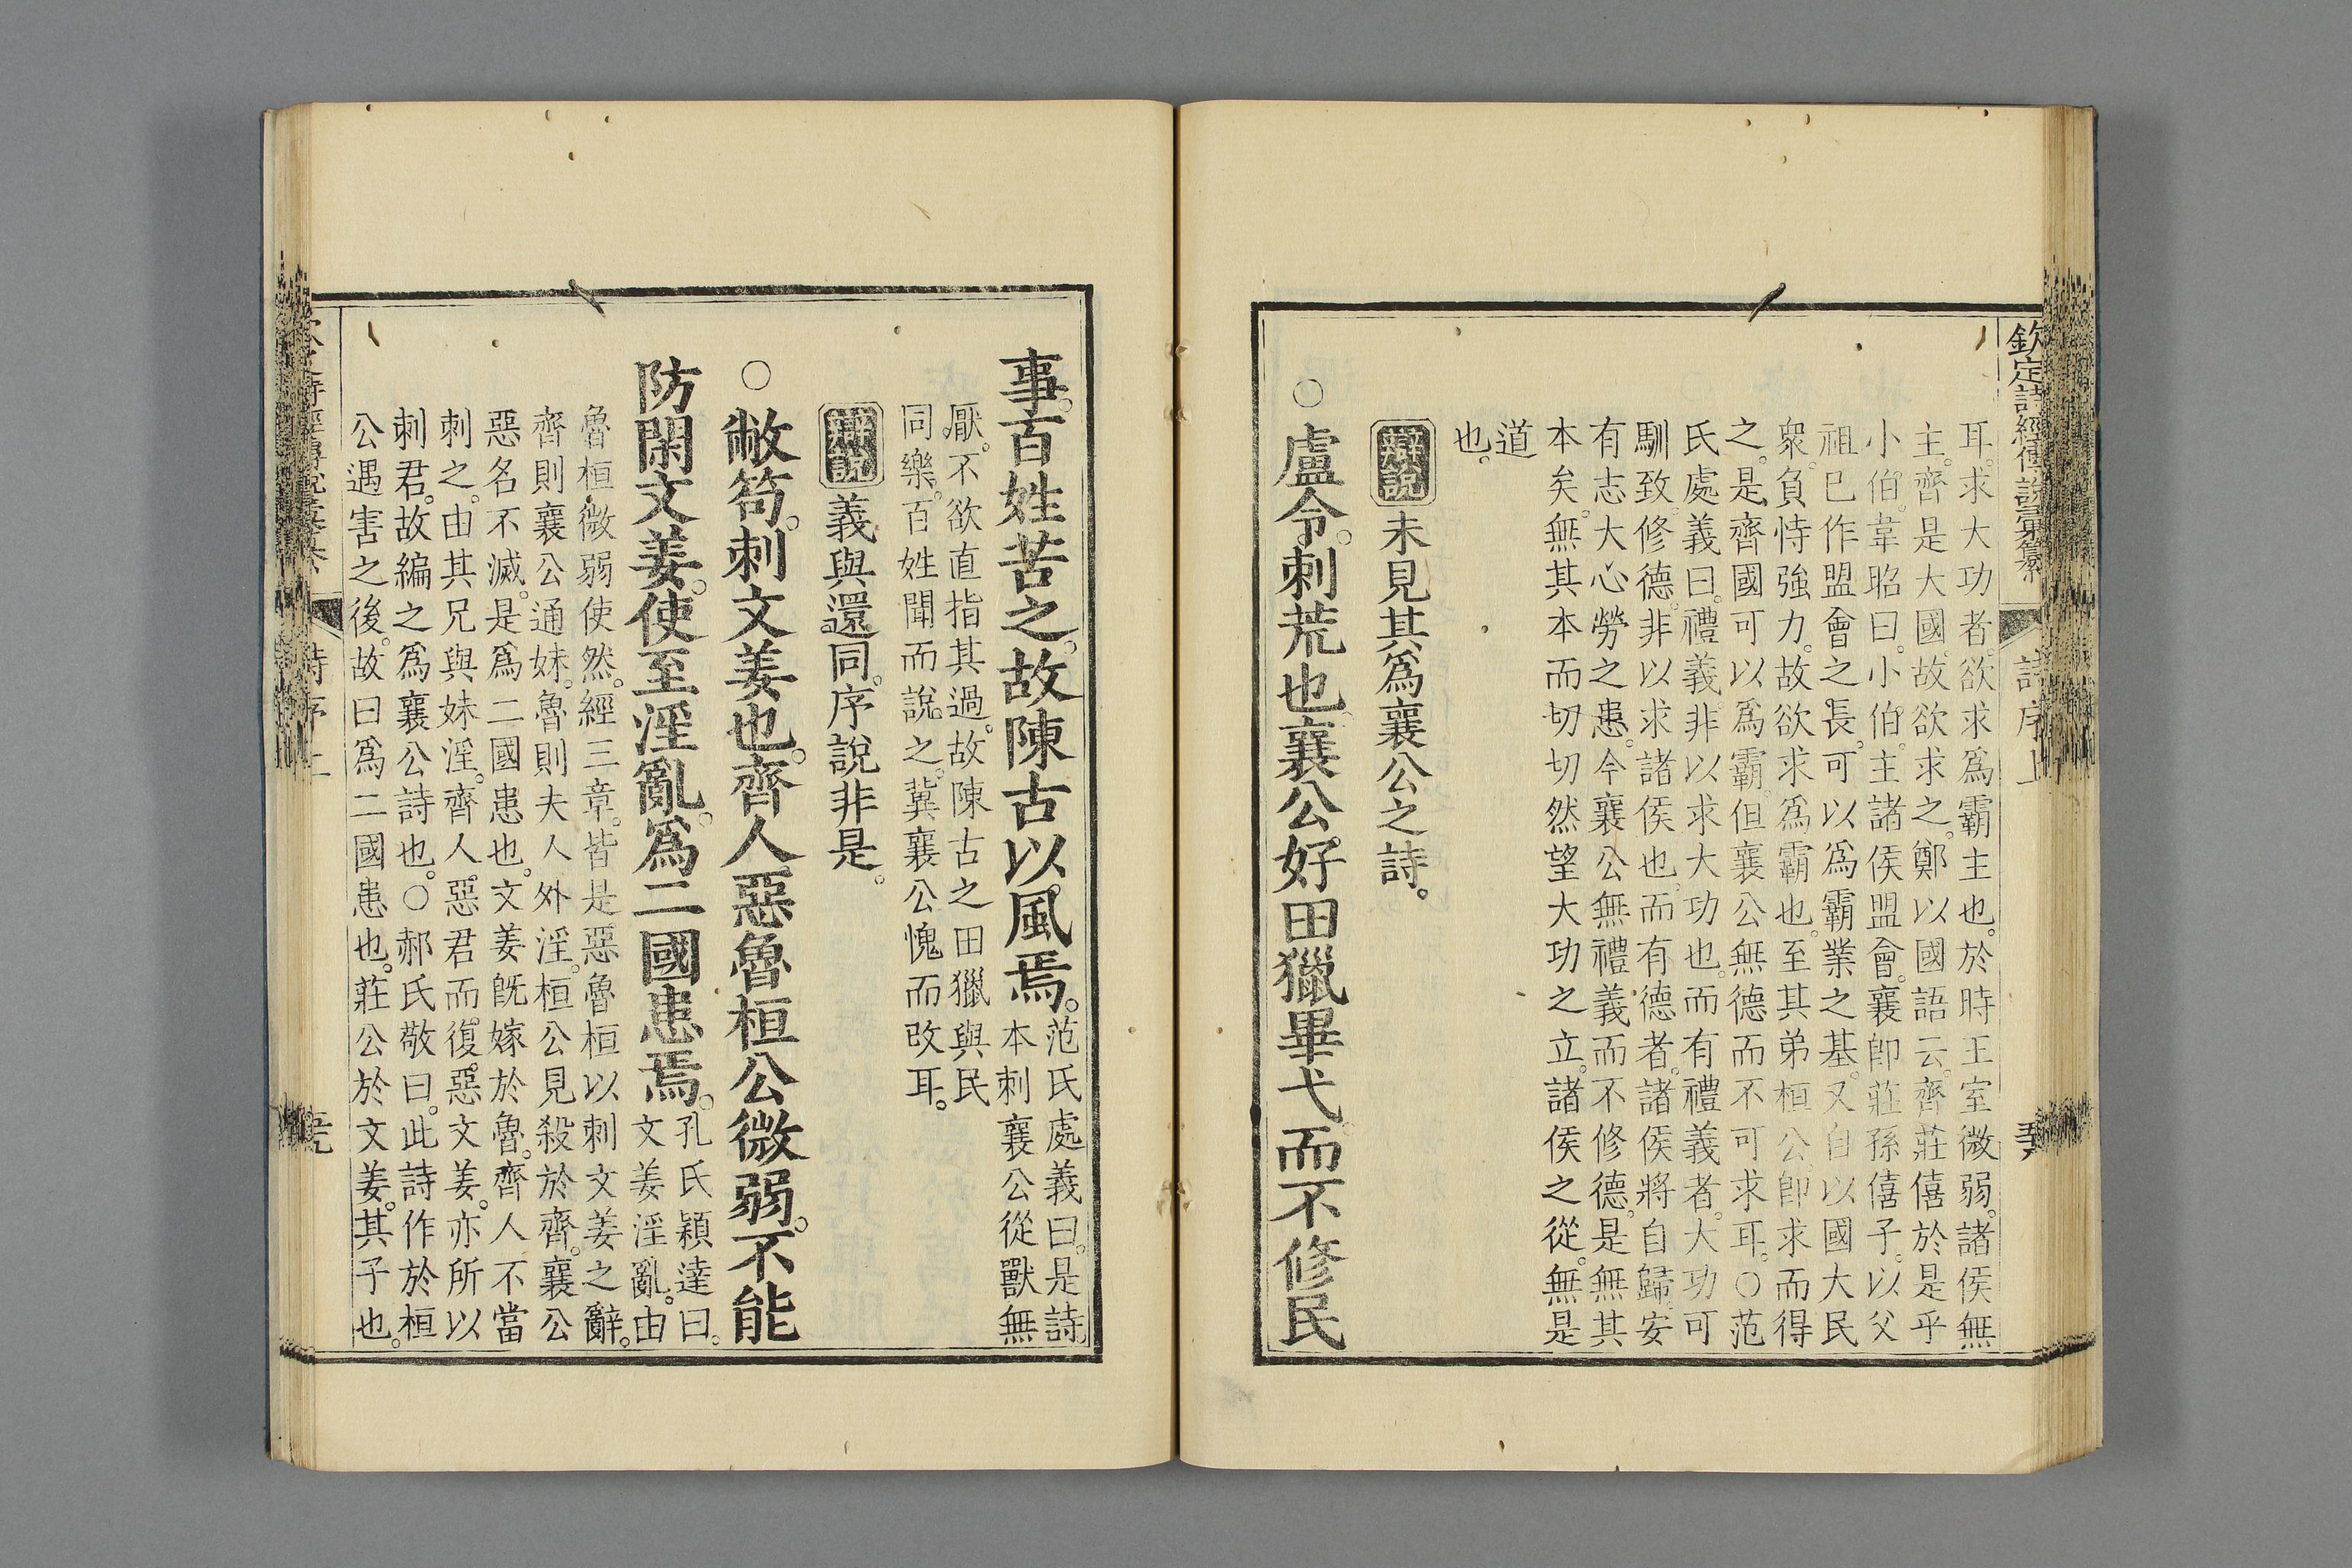 欽定詩經傳說彙纂 詩序上
耳。求大功者。欲求爲霸主也。於時王室微弱。諸侯無
主。齊是大國。故欲求之。鄭以國語云。齊莊僖於是乎
小伯。韋昭曰。小伯。主諸侯盟會。襄卽莊孫僖子。以父
祖已作盟會之長。可以爲霸業之基。又自以國大民
衆。負恃強力。故欲求爲霸也。至其弟桓公。卽求而得
之。是齊國可以爲霸。但襄公無德而不可求耳。○范
氏處義曰。禮義。非以求大功也。而有禮義者。大功可
馴致。修德。非以求諸侯也。而有德者。諸侯將自歸。安
有志大心勞之患。今襄公無禮義而不修德。是無其
本矣。無其本而切切然望大功之立。諸侯之從。無是
道
也。
辨說 未見其爲襄公之詩。
○盧令。刺荒也。襄公好田獵畢弋。而不修民
事。百姓苦之。故陳古以風焉。
范氏處義曰。是詩。
本刺襄公從獸無
厭。不欲直指其過。故陳古之田獵與民
同樂。百姓聞而說之。冀襄公愧而改耳。
辨說 義與還同。序說非是。
○敝笱。刺文姜也。齊人惡魯桓公微弱。不能
防閑文姜。使至淫亂。爲二國患焉。
孔氏穎達曰。
文姜淫亂。由
魯桓微弱使然。經三章。皆是惡魯桓以刺文姜之辭。
齊則襄公通妹。魯則夫人外淫。桓公見殺於齊。襄公
惡名不滅。是爲二國患也。文姜旣嫁於魯。齊人不當
刺之。由其兄與妹淫。齊人惡君而復惡文姜。亦所以
刺君。故編之爲襄公詩也。○郝氏敬曰。此詩作於桓
公遇害之後。故曰爲二國患也。莊公於文姜。其子也。
詩序上